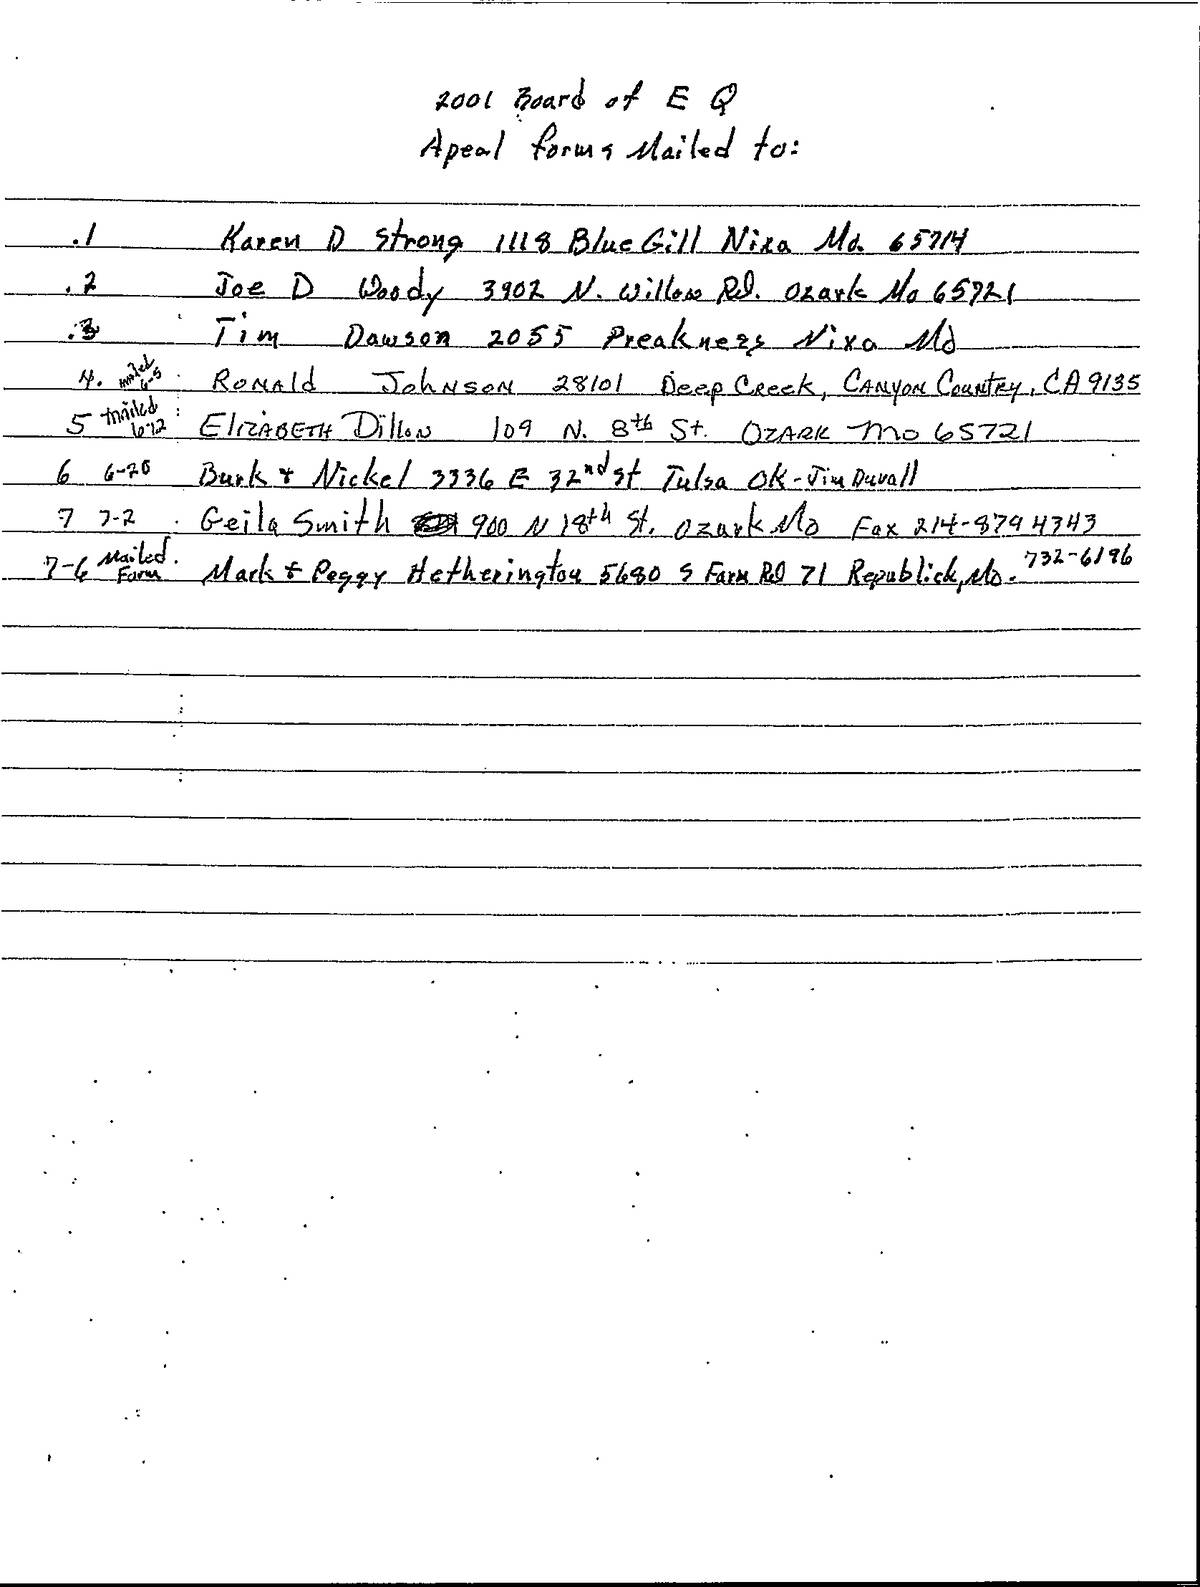 2001 Board of E Q
Apeal forms Mailed to:
.1 Karen D Strong 1118 Blue Gill Nixa Mo. 65714
.2 Joe D Woody 3902 N. Willow Rd. Ozark Mo 65721
.3 Tim Dawson 2055 Preakness Nixa Mo
4. mailed 6-5 Ronald Johnson 28101 Deep Creek, Canyon Country, CA 9135
5 mailed 6-12 Elizabeth Dillon 109 N. 8th St. Ozark Mo 65721
6 6-20 Burk & Nickel 3336 E 32nd St Tulsa OK - Jim Duvall
7 7-2 Geila Smith 900 N 18th St. Ozark Mo Fax 214-879 4343
7-6 Mailed Form Mark & Peggy Hetherington 5680 S Farm Rd 71 Republick, Mo. 732-6196